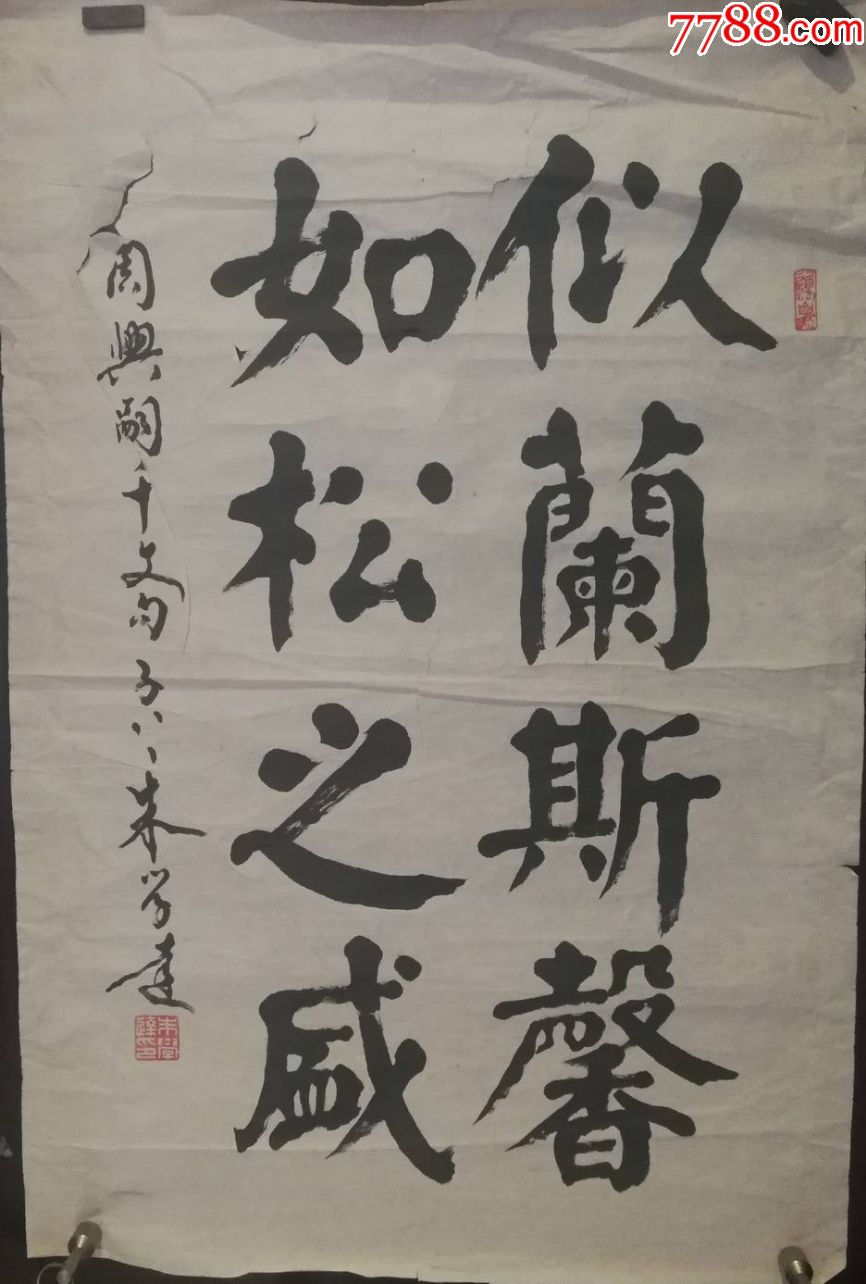 7788.com
似蘭斯馨
如松之盛
周興嗣千文句 子八八 朱学達